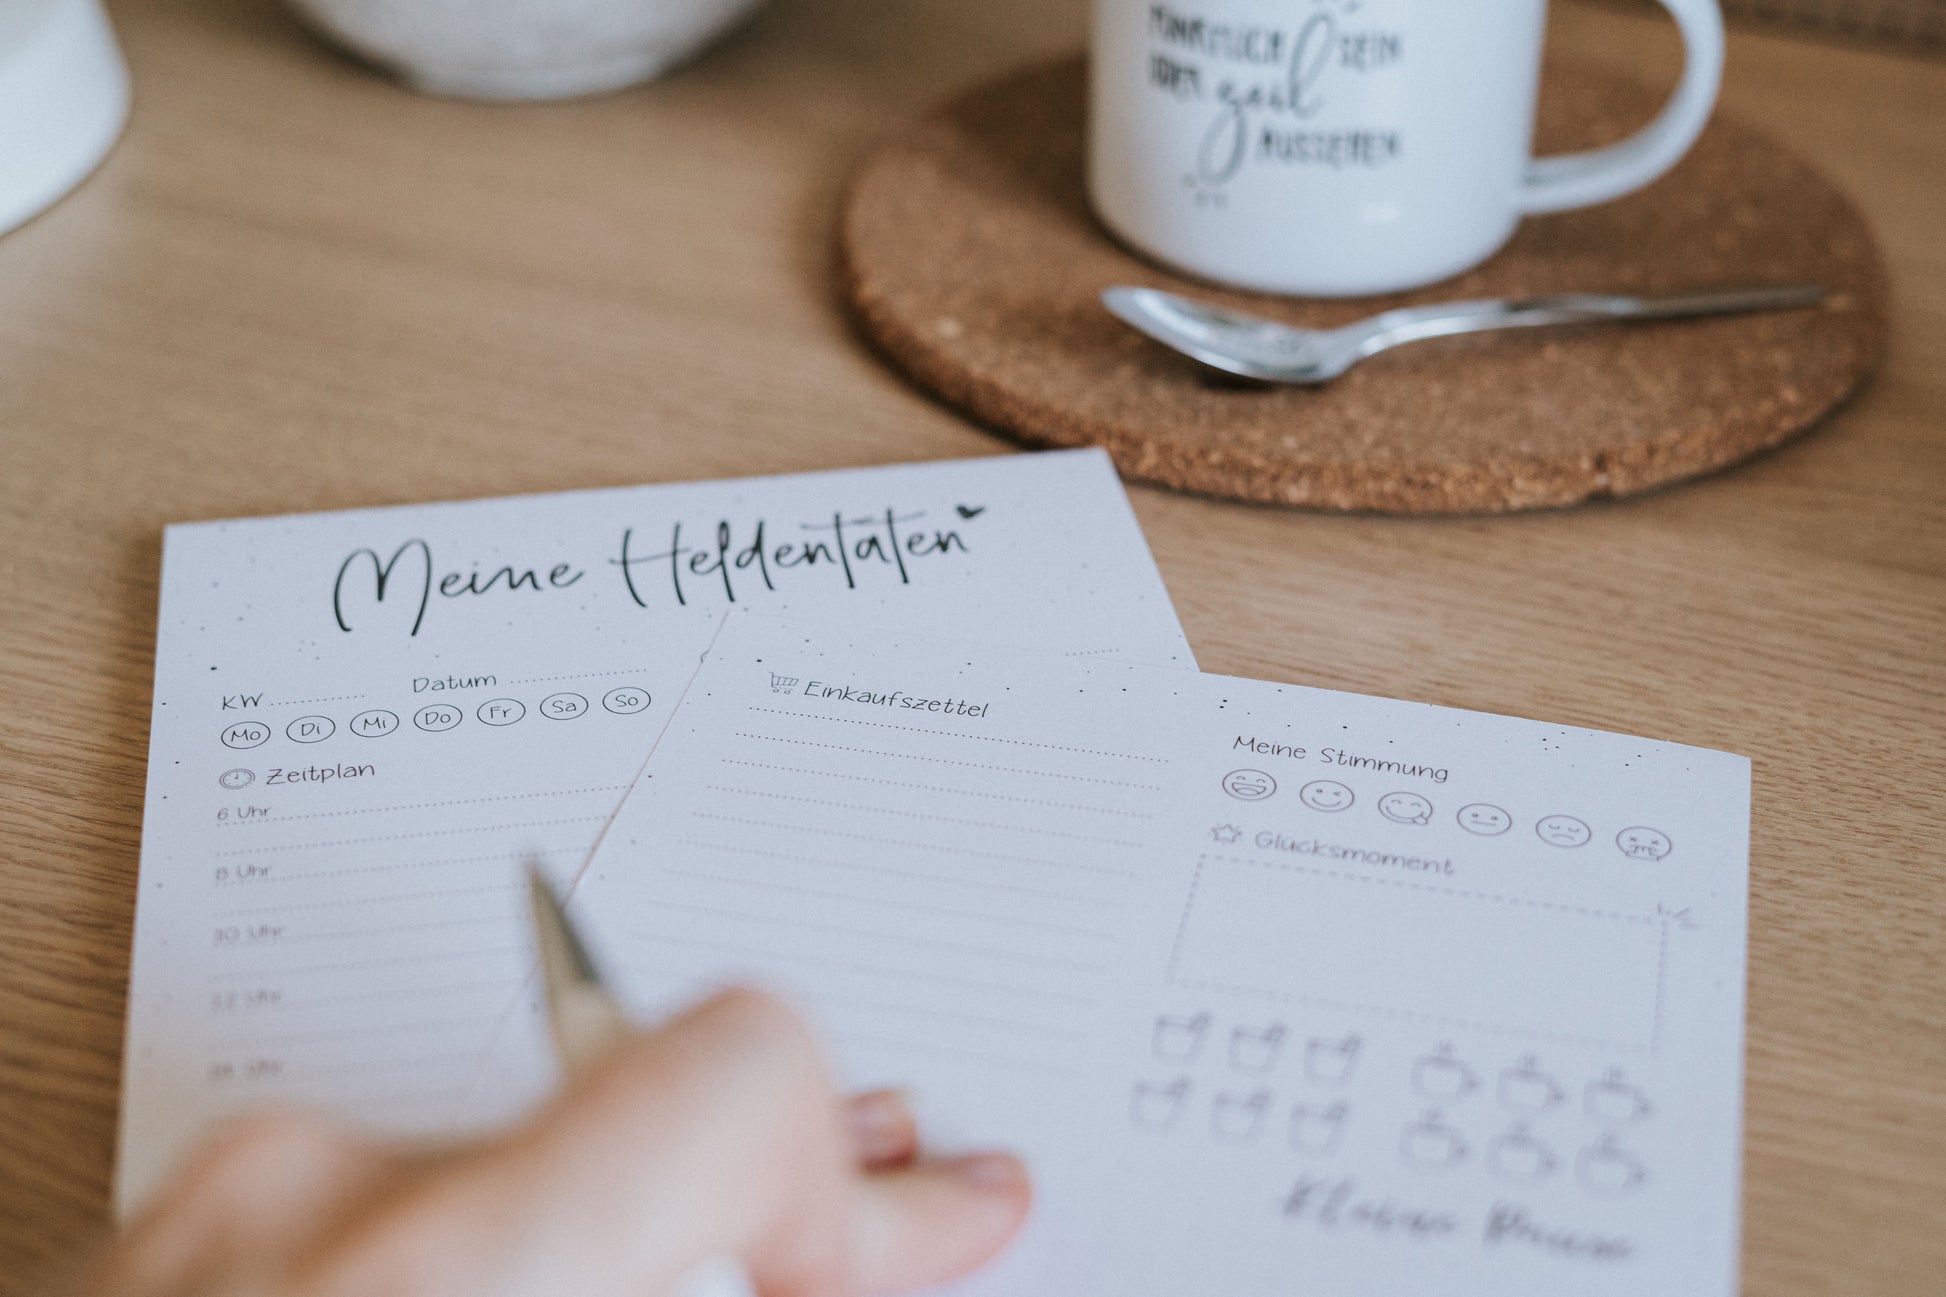 PÜNKTLICH SEIN
ODER geil
AUSSEHEN
Meine Heldentaten
KW Datum
Mo Di Mi Do Fr Sa So
Zeitplan
6 Uhr
8 Uhr
10 Uhr
12 Uhr
14 Uhr
Einkaufszettel
Meine Stimmung
Glücksmoment